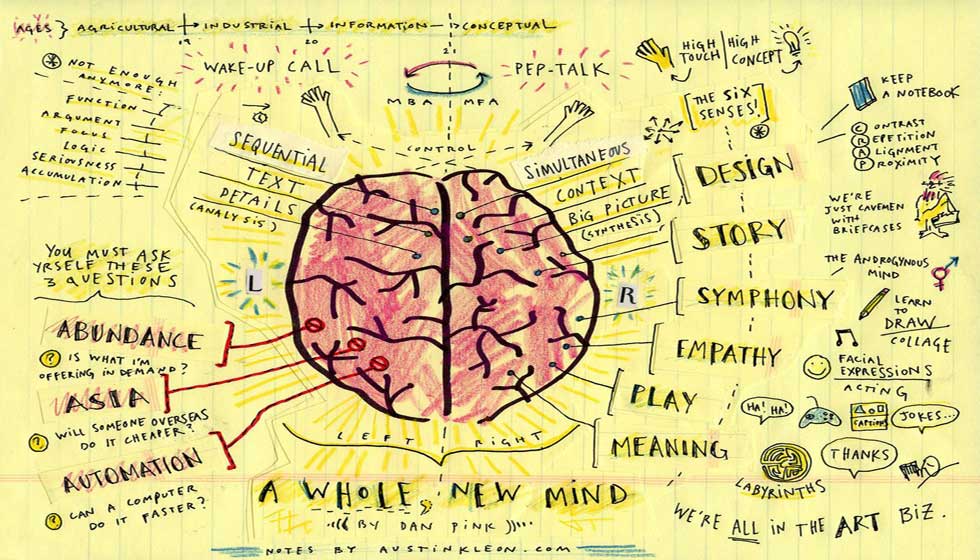 AGES } AGRICULTURAL → INDUSTRIAL → INFORMATION → CONCEPTUAL
19 20 21
NOT ENOUGH
ANYMORE!
FUNCTION
ARGUMENT
FOCUS
LOGIC
SERIOUSNESS
ACCUMULATION
WAKE-UP CALL
PEP-TALK
MBA MFA
HIGH TOUCH
HIGH CONCEPT
[THE SIX
SENSES!]
CONTROL
L
SEQUENTIAL
TEXT
DETAILS
(ANALYSIS)
R
SIMULTANEOUS
CONTEXT
BIG PICTURE
(SYNTHESIS)
YOU MUST ASK
YRSELF THESE
3 QUESTIONS
ABUNDANCE
? IS WHAT I'M
OFFERING IN DEMAND?
ASIA
? WILL SOMEONE OVERSEAS
DO IT CHEAPER?
AUTOMATION
? CAN A COMPUTER
DO IT FASTER?
DESIGN
STORY
SYMPHONY
EMPATHY
PLAY
MEANING
KEEP
A NOTEBOOK
CONTRAST
REPETITION
ALIGNMENT
PROXIMITY
WE'RE
JUST CAVEMEN
WITH
BRIEFCASES
THE ANDROGYNOUS
MIND
LEARN
TO
DRAW
COLLAGE
FACIAL
EXPRESSIONS
ACTING
HA! HA!
CAPTIONS
JOKES...
LABYRINTHS
THANKS
WE'RE ALL IN THE ART BIZ.
LEFT RIGHT
A WHOLE NEW MIND
BY DAN PINK
NOTES BY AUSTINKLEON.COM